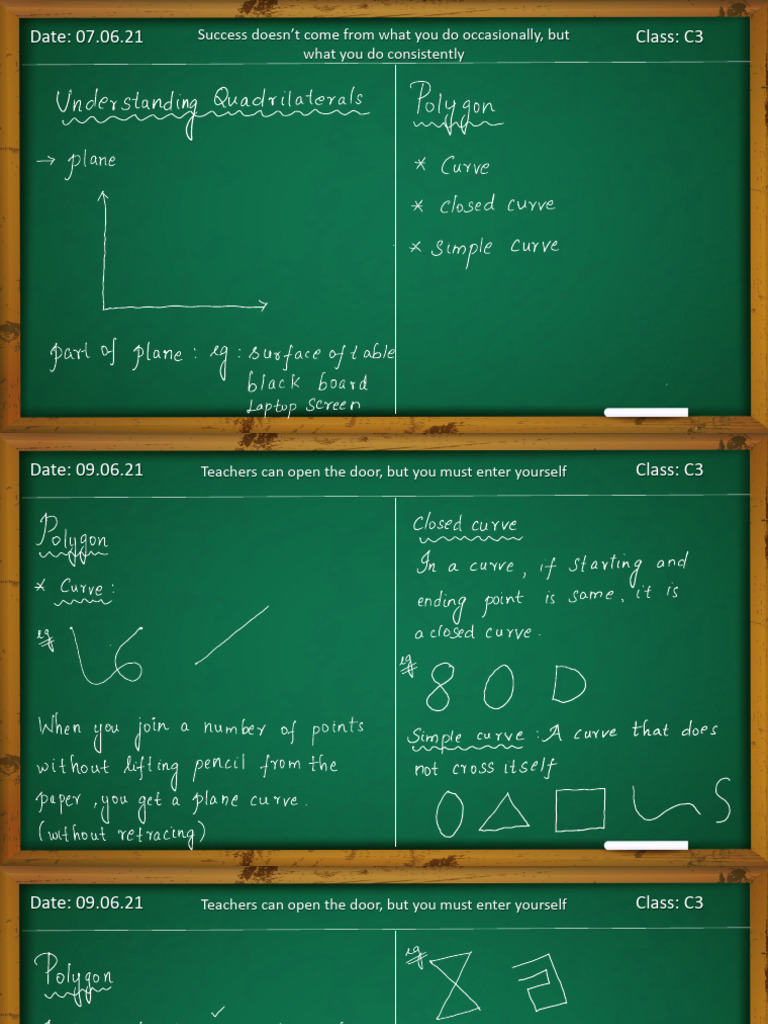 Date: 07.06.21
Success doesn't come from what you do occasionally, but
what you do consistently
Class: C3
Understanding Quadrilaterals
→ plane
part of plane : eg : surface of table
black board
Laptop Screen
Polygon
* Curve
* Closed curve
* Simple curve
Date: 09.06.21
Teachers can open the door, but you must enter yourself
Class: C3
Polygon
* Curve :
eg
When you join a number of points
without lifting pencil from the
paper , you get a plane curve .
(without retracing)
Closed curve
In a curve , if starting and
ending point is same , it is
a closed curve .
eg
8 O D
Simple curve : A curve that does
not cross itself
Date: 09.06.21
Teachers can open the door, but you must enter yourself
Class: C3
Polygon
eg